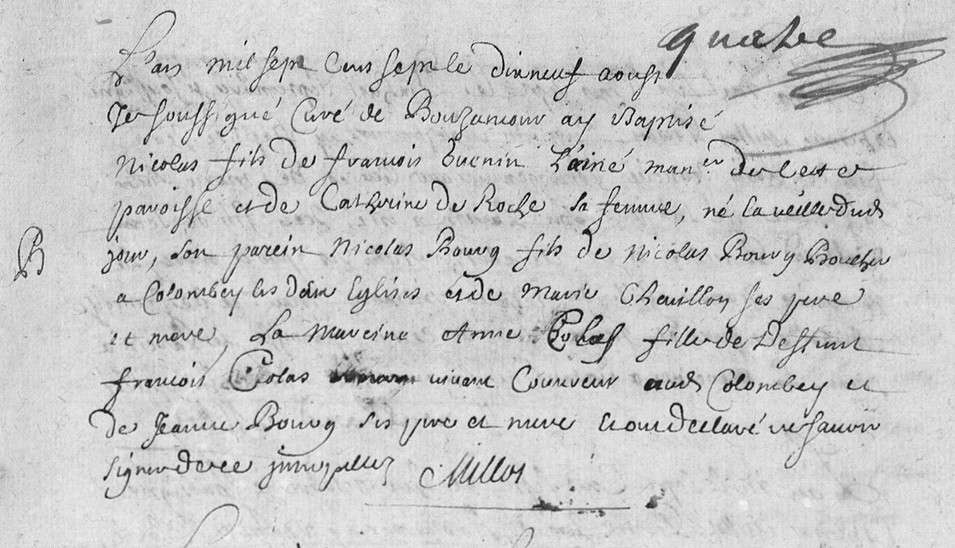 quatre
L'an mil sept cens sept le dixneuf aoust
Je soussigné Curé de Bourzancour ay Baptisé
Nicolas fils de francois Guenin L'ainé man.er de cette
paroisse et de Catherine de Roche sa femme, né la veille dud
B
jour, son parein Nicolas Bourg fils de Nicolas Bourg Boucher
a Colombey les deux Eglises et de Marie Chevillon ses pere
et mere, La Mareine Anne Colas fille de Deffunt
francois Colas vivant Couvreur aud Colombey et
de Jeanne Bourg ses pere et mere Lesquels ont declaré ne scavoir
signer de ce interpellez Millot